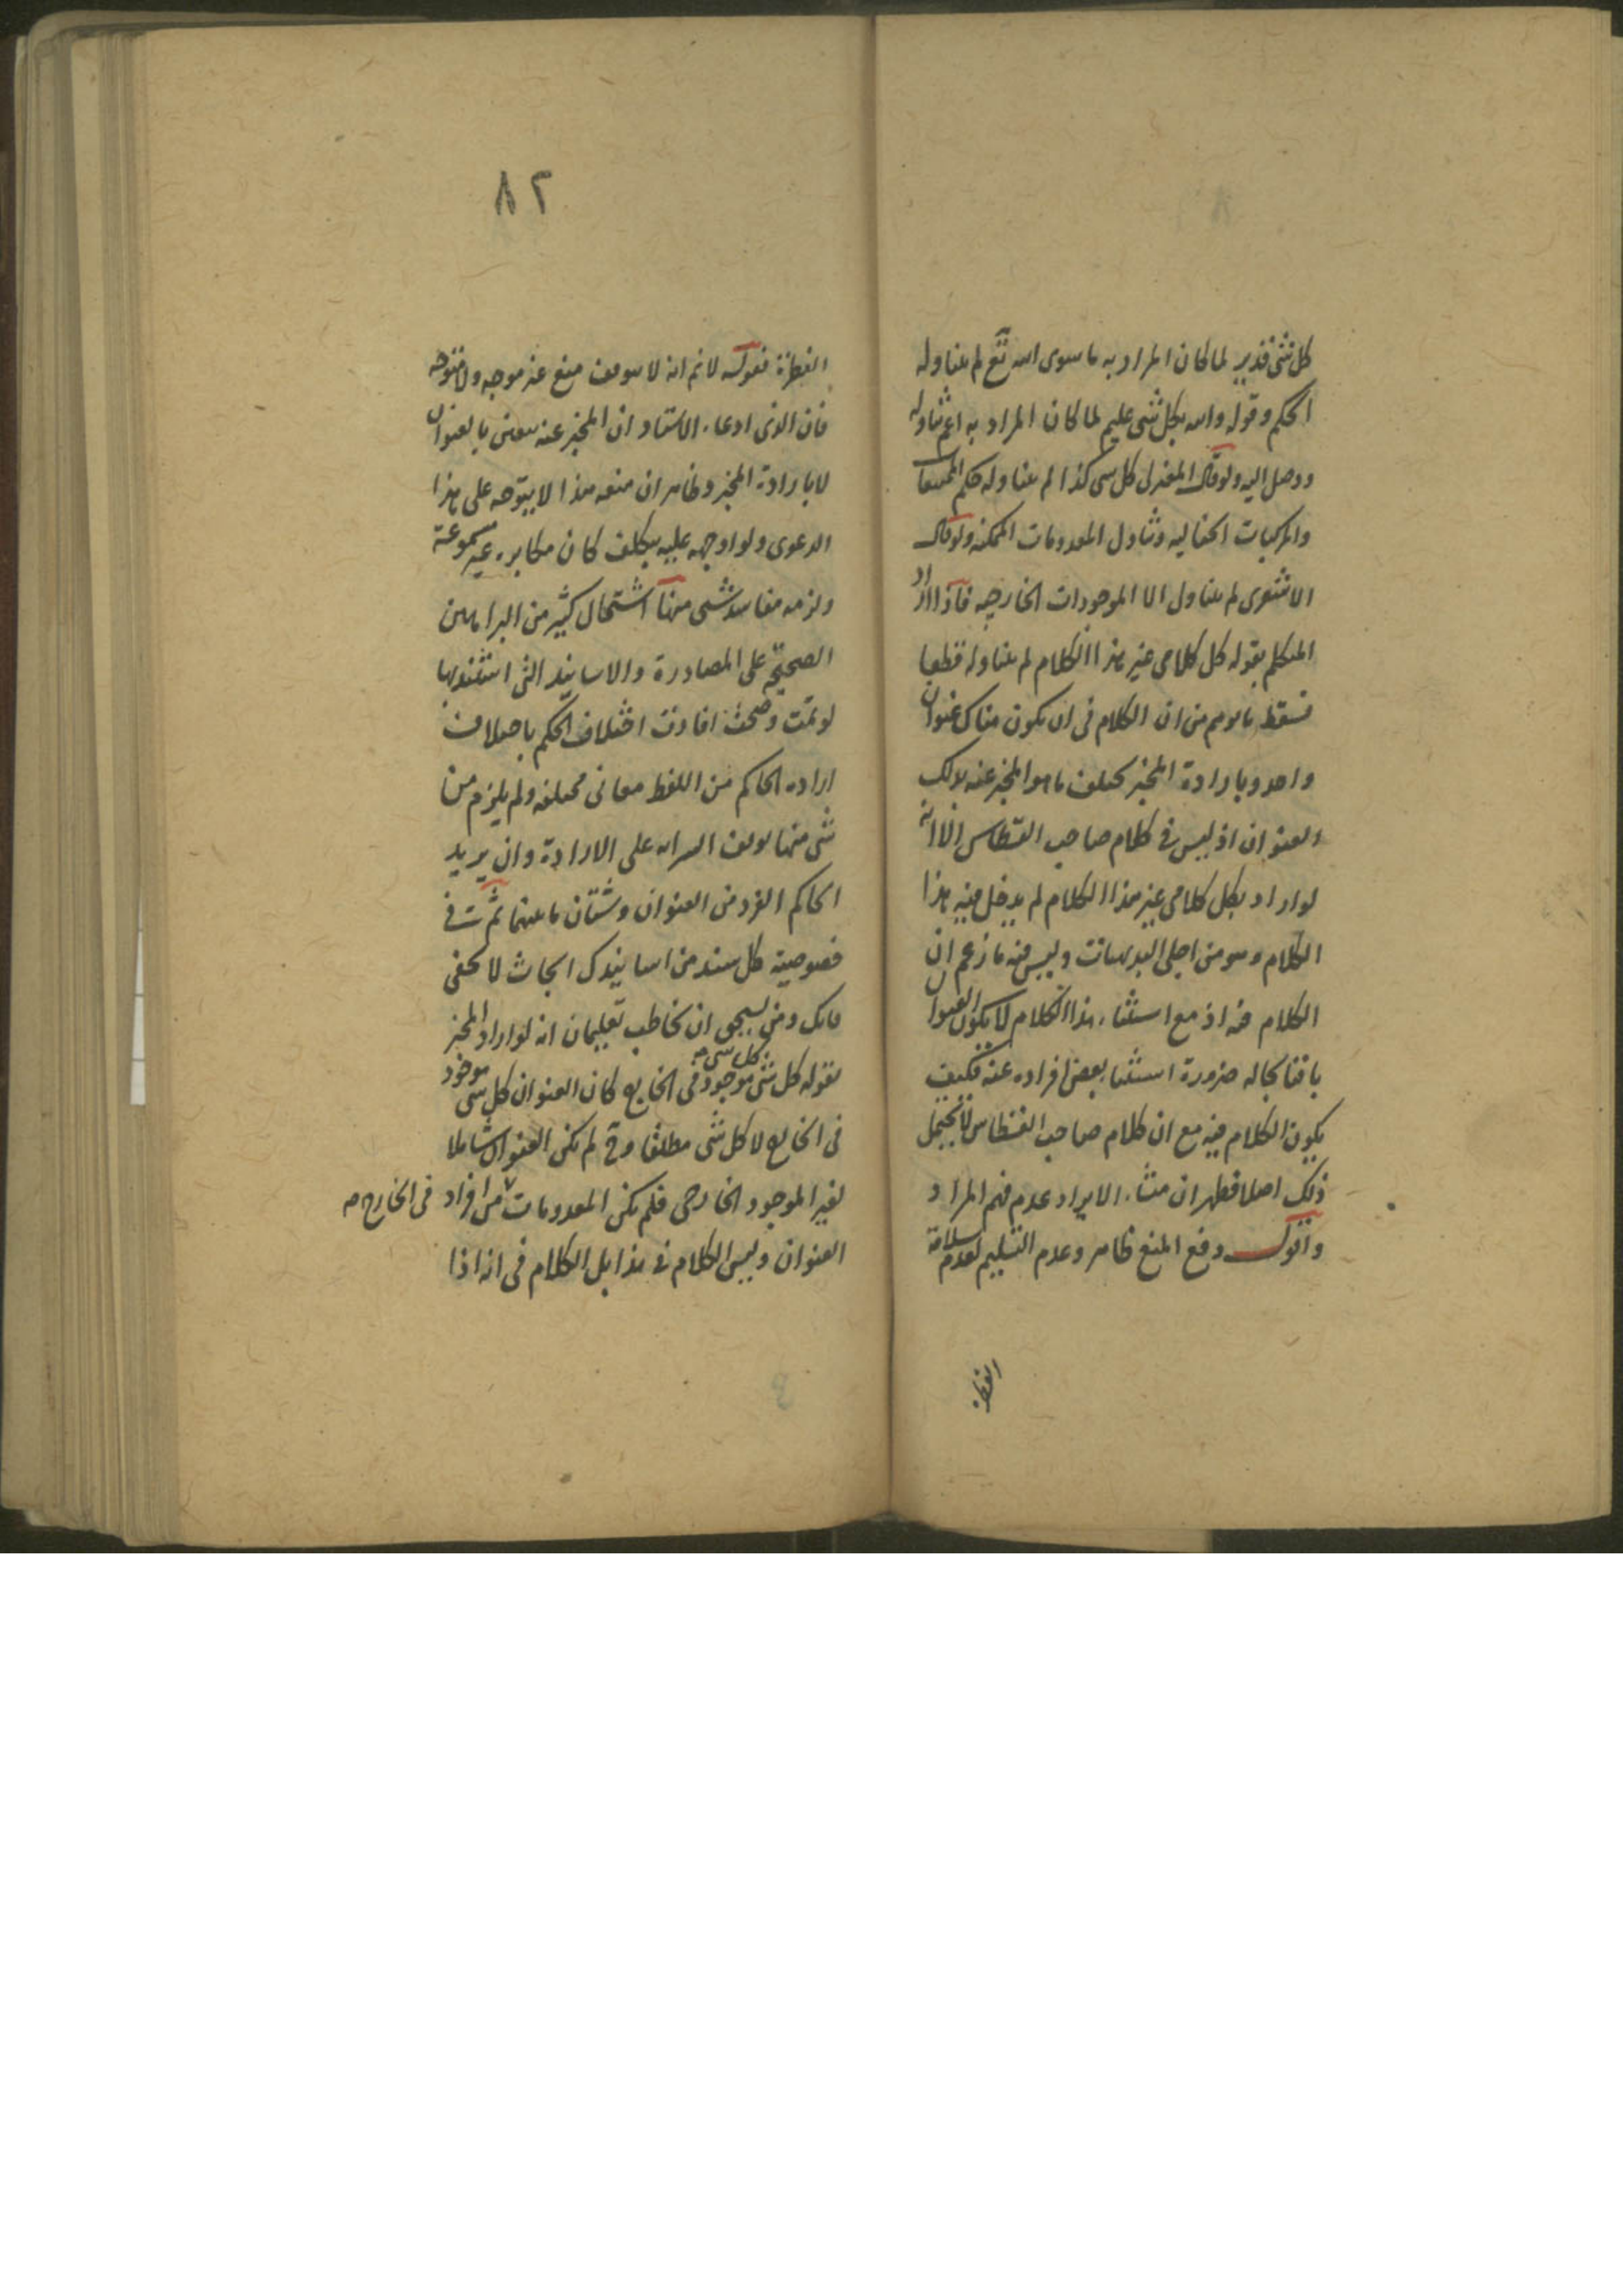 كل شئ قدير لما كان المراد به ما سوى الله تع لم يتناوله
الحكم وقوله والله بكل شئ عليم لما كان المراد به اعم تناوله
ووصل اليه ولو قال المعتزلى كل شى كذا لم يتناوله حكم الممتنعات
والمركبات الخياليه وتناول المعدومات الممكنه ولو قال
الاشعرى لم يتناول الا الموجودات الخارجيه فاذا اراد
المتكلم بقوله كل كلامى غير هذا الكلام لم يتناوله قطعا
فسقط ما توهم من ان الكلام فى ان يكون هناك عنوان
واحد وبارادة المخبر يختلف ما هو المخبر عنه بذلك
العنوان اذ ليس فى كلام صاحب القسطاس الا انه
لو اراد بكل كلامى غير هذا الكلام لم يدخل فيه هذا
الكلام وهو من اجلى البديهيات وليس فيه ما زعم ان
الكلام فيه اذ مع استثناء هذا الكلام لا يكون العنوان
باقيا بحاله ضرورة استثنا بعض افراده عنه فكيف
يكون الكلام فيه مع ان كلام صاحب القسطاس لا يحتمل
ذلك اصلا فظهر ان منشاء الايراد عدم فهم المراد
واقول دفع المنع ظاهر وعدم التسليم لعدم سلامة
الفطرة
٨٢
الفطرة فقوله لا نم انه لا يتوقف منع غير موجه ولا متوجه
فان الذى ادعاه الاستاد ان المخبر عنه يتعين بالعنوان
لا بارادة المخبر وظاهر ان منعه هذا لا يتوجه على هذا
الدعوى ولو اوجهه عليه بتكلف كان مكابره غير مسموعة
ولزمه مفاسد شتى منها اشتمال كثير من البراهين
الصحيحة على المصادرة والاسانيد التى استند بها
لو تمت وصحت افادت اختلاف الحكم باختلاف
اراده الحاكم من اللفظ معانى مختلفه ولم يلزم من
شى منها توقف السرايه على الارادة وان يريد
الحاكم الفرد من العنوان وشتان ما بينهما ثم فى
خصوصية كل سند من اسانيدك ابحاث لا تخفى
ان يخاطب بعليمان انه لو اراد المخبر
بقوله كل شئ كل شى موجود فى الخارج كان العنوان كل شى موجود
فى الخارج لا كل شى مطلقا وح لم يكن العنوان شاملا
لغير الموجود الخارجى فلم يكن المعدومات من افراد
فى الخارج صح
العنوان وليس الكلام فى هذا بل الكلام فى انه اذا